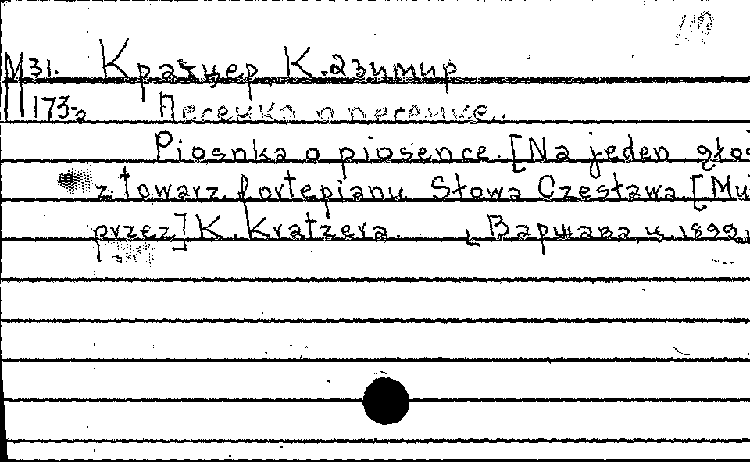 М31. Кратцер, Казимир
173-2 Песенка о песенке.
Piosnka o piosence. [Na jeden głos
z towarz. fortepianu Słowa Czesława. [Mu
przez] K. Kratzera. Варшава, ц. 1899,